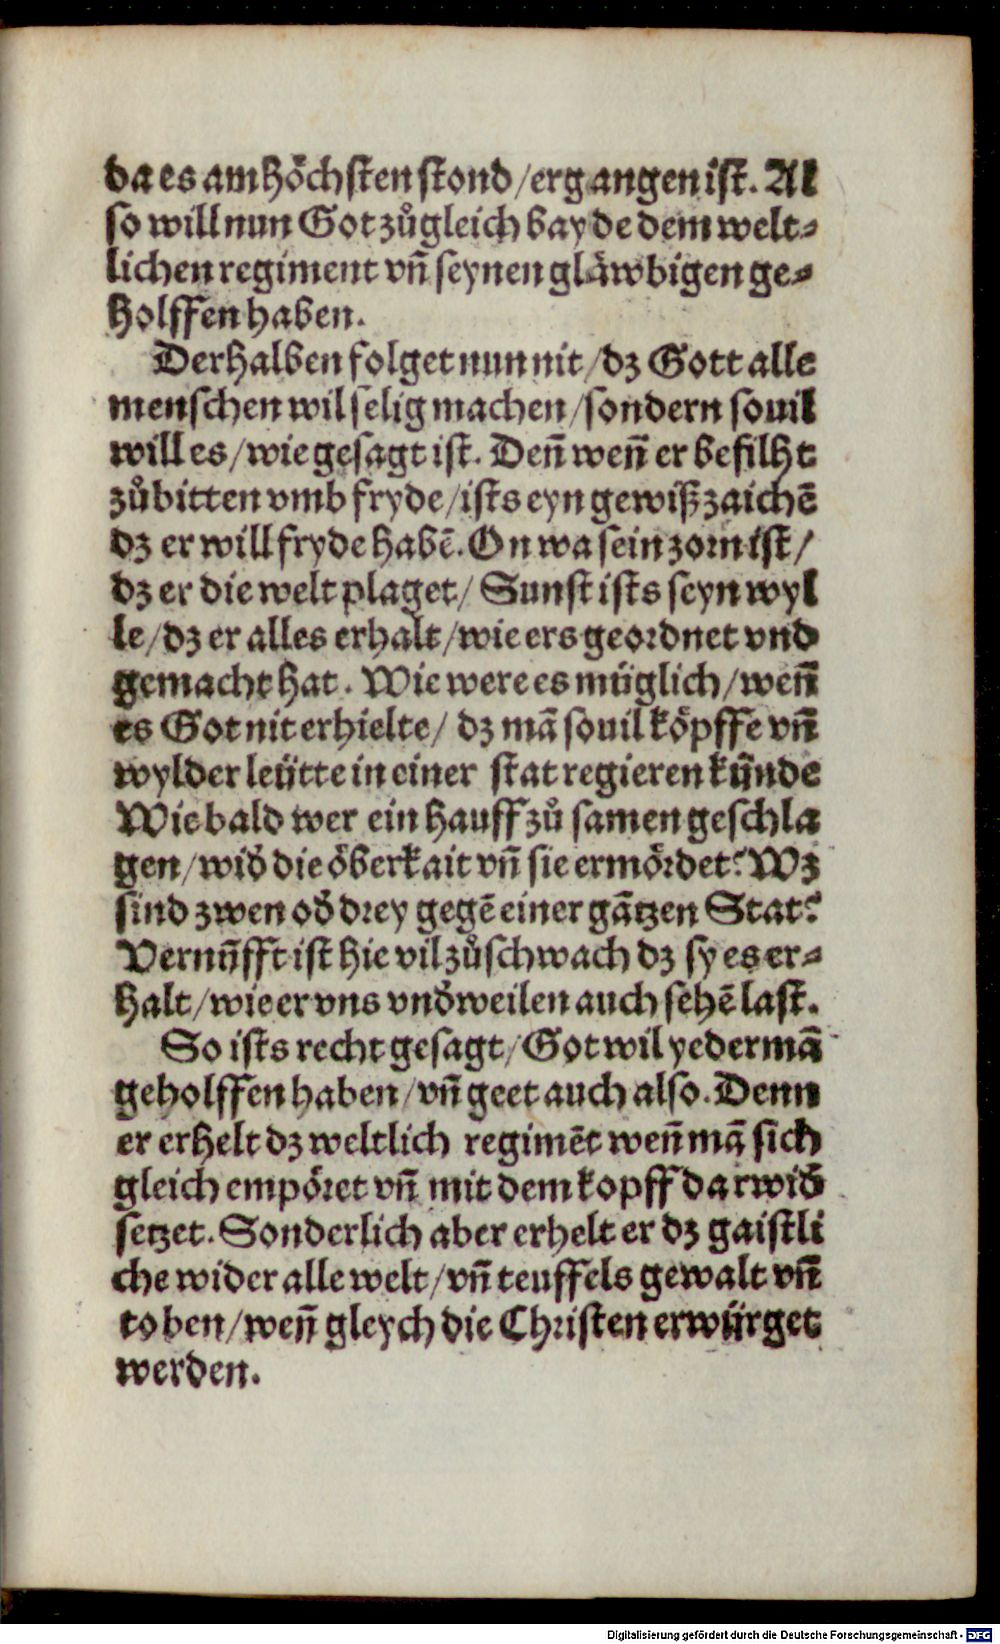 da es am höchsten stond/ergangen ist. Al
so will nun Got zůgleich bayde dem welt⸗
lichen regiment vñ seynen gläwbigen ge⸗
holffen haben.
Derhalben folget nun nit/dz Gott alle
menschen wil selig machen/sondern souil
will es/wie gesagt ist. Deñ weñ er befilht
zů bitten vmb fryde/ists eyn gewiß zaichē
dz er will fryde habē. On wa sein zorn ist/
dz er die welt plaget/ Sunst ists seyn wyl
le/dz er alles erhalt/wie ers geordnet vnd
gemacht hat. Wie were es müglich/weñ
es Got nit erhielte/ dz mā souil köpffe vñ
wylder leütte in einer stat regieren künde
Wie bald wer ein hauff zů samen geschla
gen/wid̄ die öberkait vñ sie ermördet? Wz
sind zwen od̄ drey gegē einer gātzen Stat?
Vernüfft ist hie vil zů schwach dz sy es er⸗
halt/wie er vns vnd̄weilen auch sehē last.
So ists recht gesagt/Got wil yedermā
geholffen haben/vñ geet auch also. Denn
er erhelt dz weltlich regimēt weñ mā sich
gleich empöret vñ mit dem kopff darwid̄
setzet. Sonderlich aber erhelt er dz gaistli
che wider alle welt/vñ teuffels gewalt vñ
toben/weñ gleych die Christen erwürget
werden.
Digitalisierung gefördert durch die Deutsche Forschungsgemeinschaft - DFG